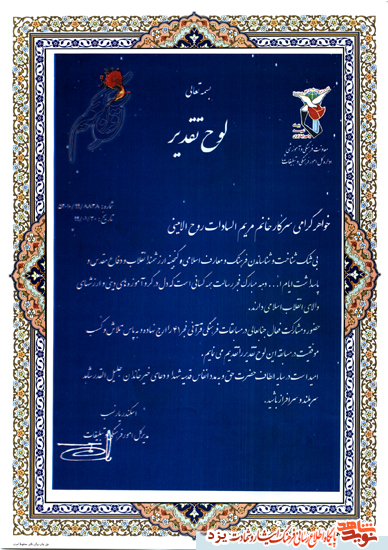 بسمه تعالی
لوح تقدیر
معاونت فرهنگی و آموزشی
اداره کل امور فرهنگی و تبلیغات
شماره:
تاریخ:
خواهر گرامی سرکار خانم مریم السادات روح الامینی
بی شک شناخت و شناساندن فرهنگ و معارف اسلامی و گنجینه ارزشمند انقلاب و دفاع مقدس و
پاسداشت امام و ... وجه مبارک فرر سالت همه کسانی است که دل در گرو آموزه های دینی و ارزشهای
والای انقلاب اسلامی دارند.
حضور و مشارکت فعال جنابعالی در مسابقات فرهنگی قرآنی فجر ۲۱ را ارج نهاده و به پاس تلاش و کسب
موفقیت در مسابقه این لوح تقدیر را تقدیم می نمایم.
امید است در سایه الطاف حضرت حق و به مدد انفاس قدسیه شهدا و دعای خیر خاندان جلیل القدر شاهد
سربلند و سرافراز باشید.
مدیرکل امور فرهنگی و تبلیغات
نوید شاهد پایگاه اطلاع رسانی فرهنگ ایثار و شهادت یزد